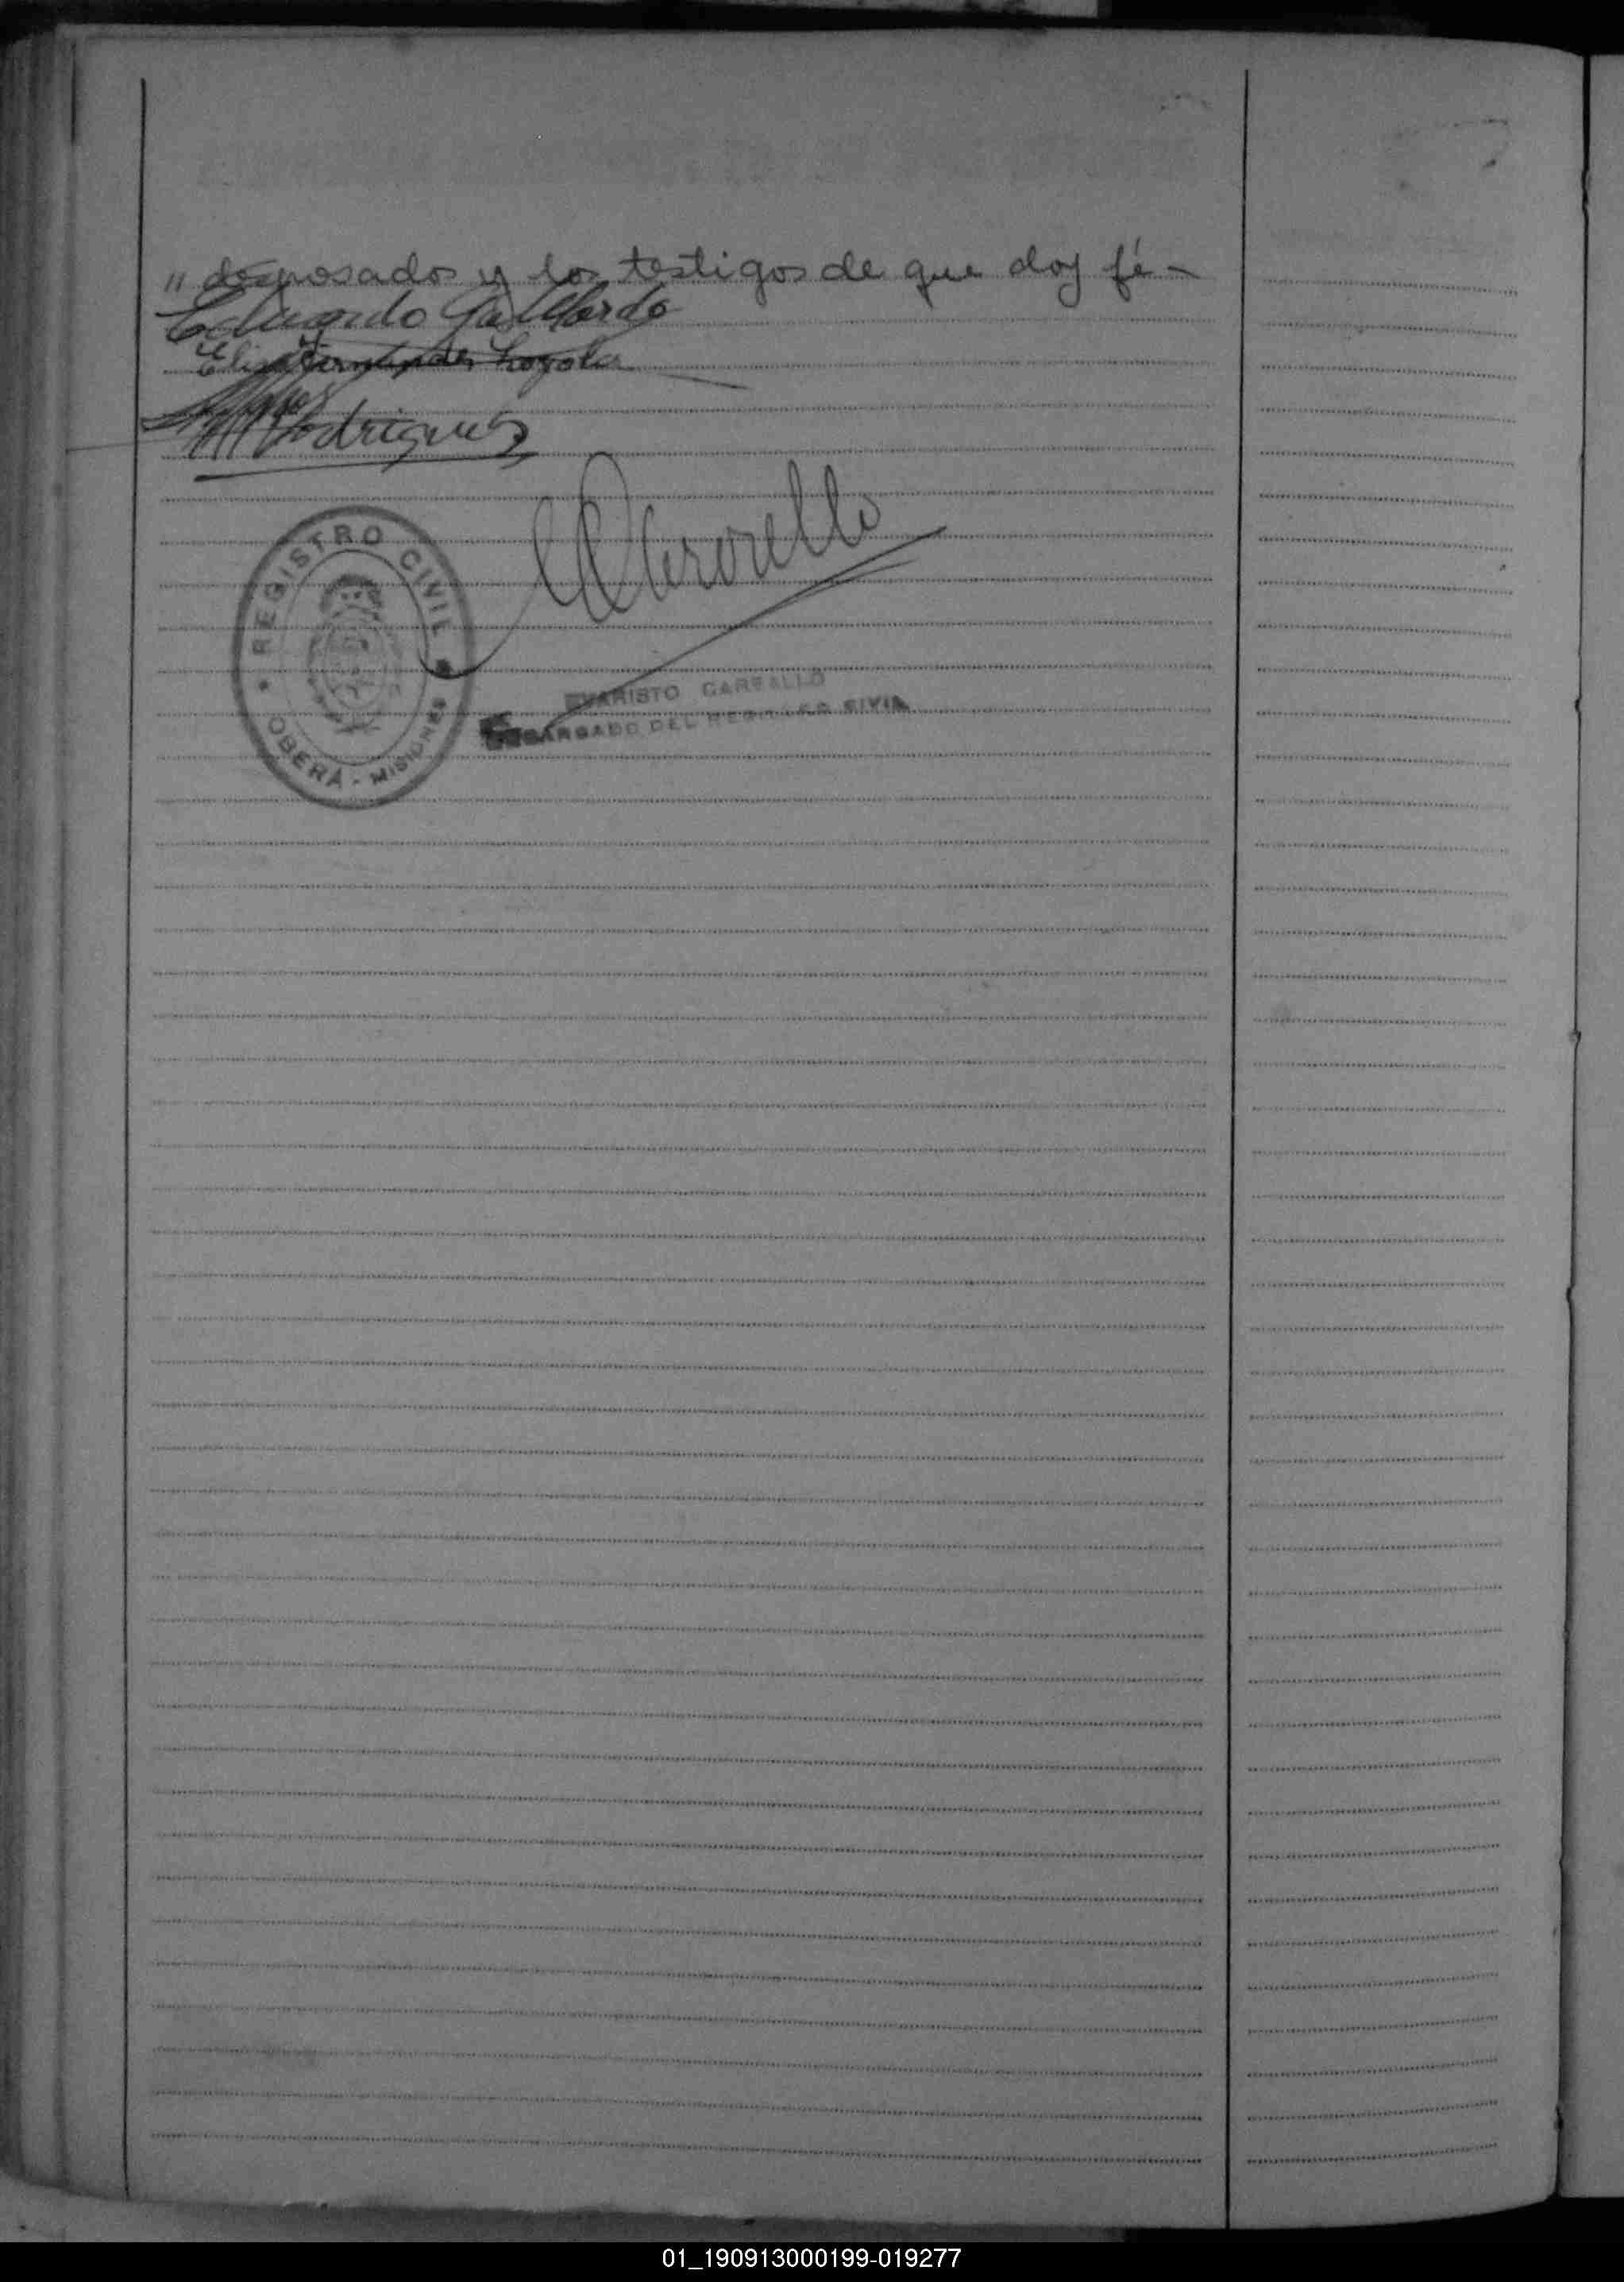 " desposados y los testigos de que doy fé -
Eduardo Gallardo
Elisa Fernandez Loyola
Rodriguez
REGISTRO CIVIL
OBERÁ - MISIONES
EVARISTO CARBALLO
ENCARGADO DEL REGISTRO CIVIL
01_190913000199-019277